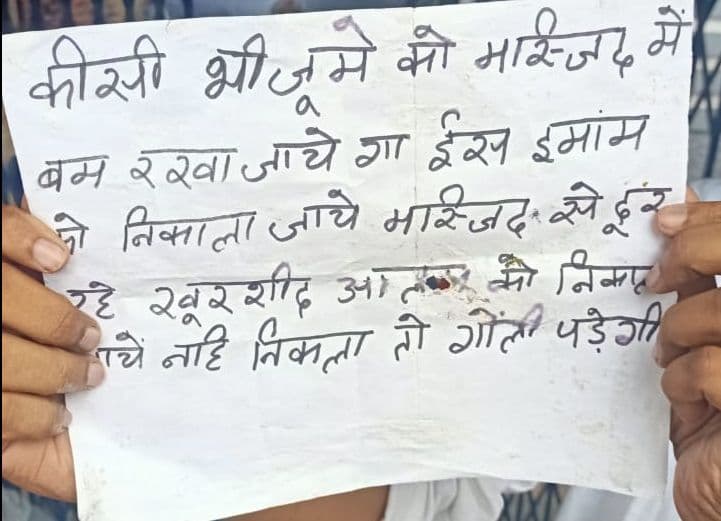 कीसी भी जूमे को मस्जिद में
बम रखा जाये गा ईस इमांम
को निकाला जाये मस्जिद से दूर
रहे खूरशीद आलम को निकाल
जायें नहि निकला तो गोंली पड़ेगी